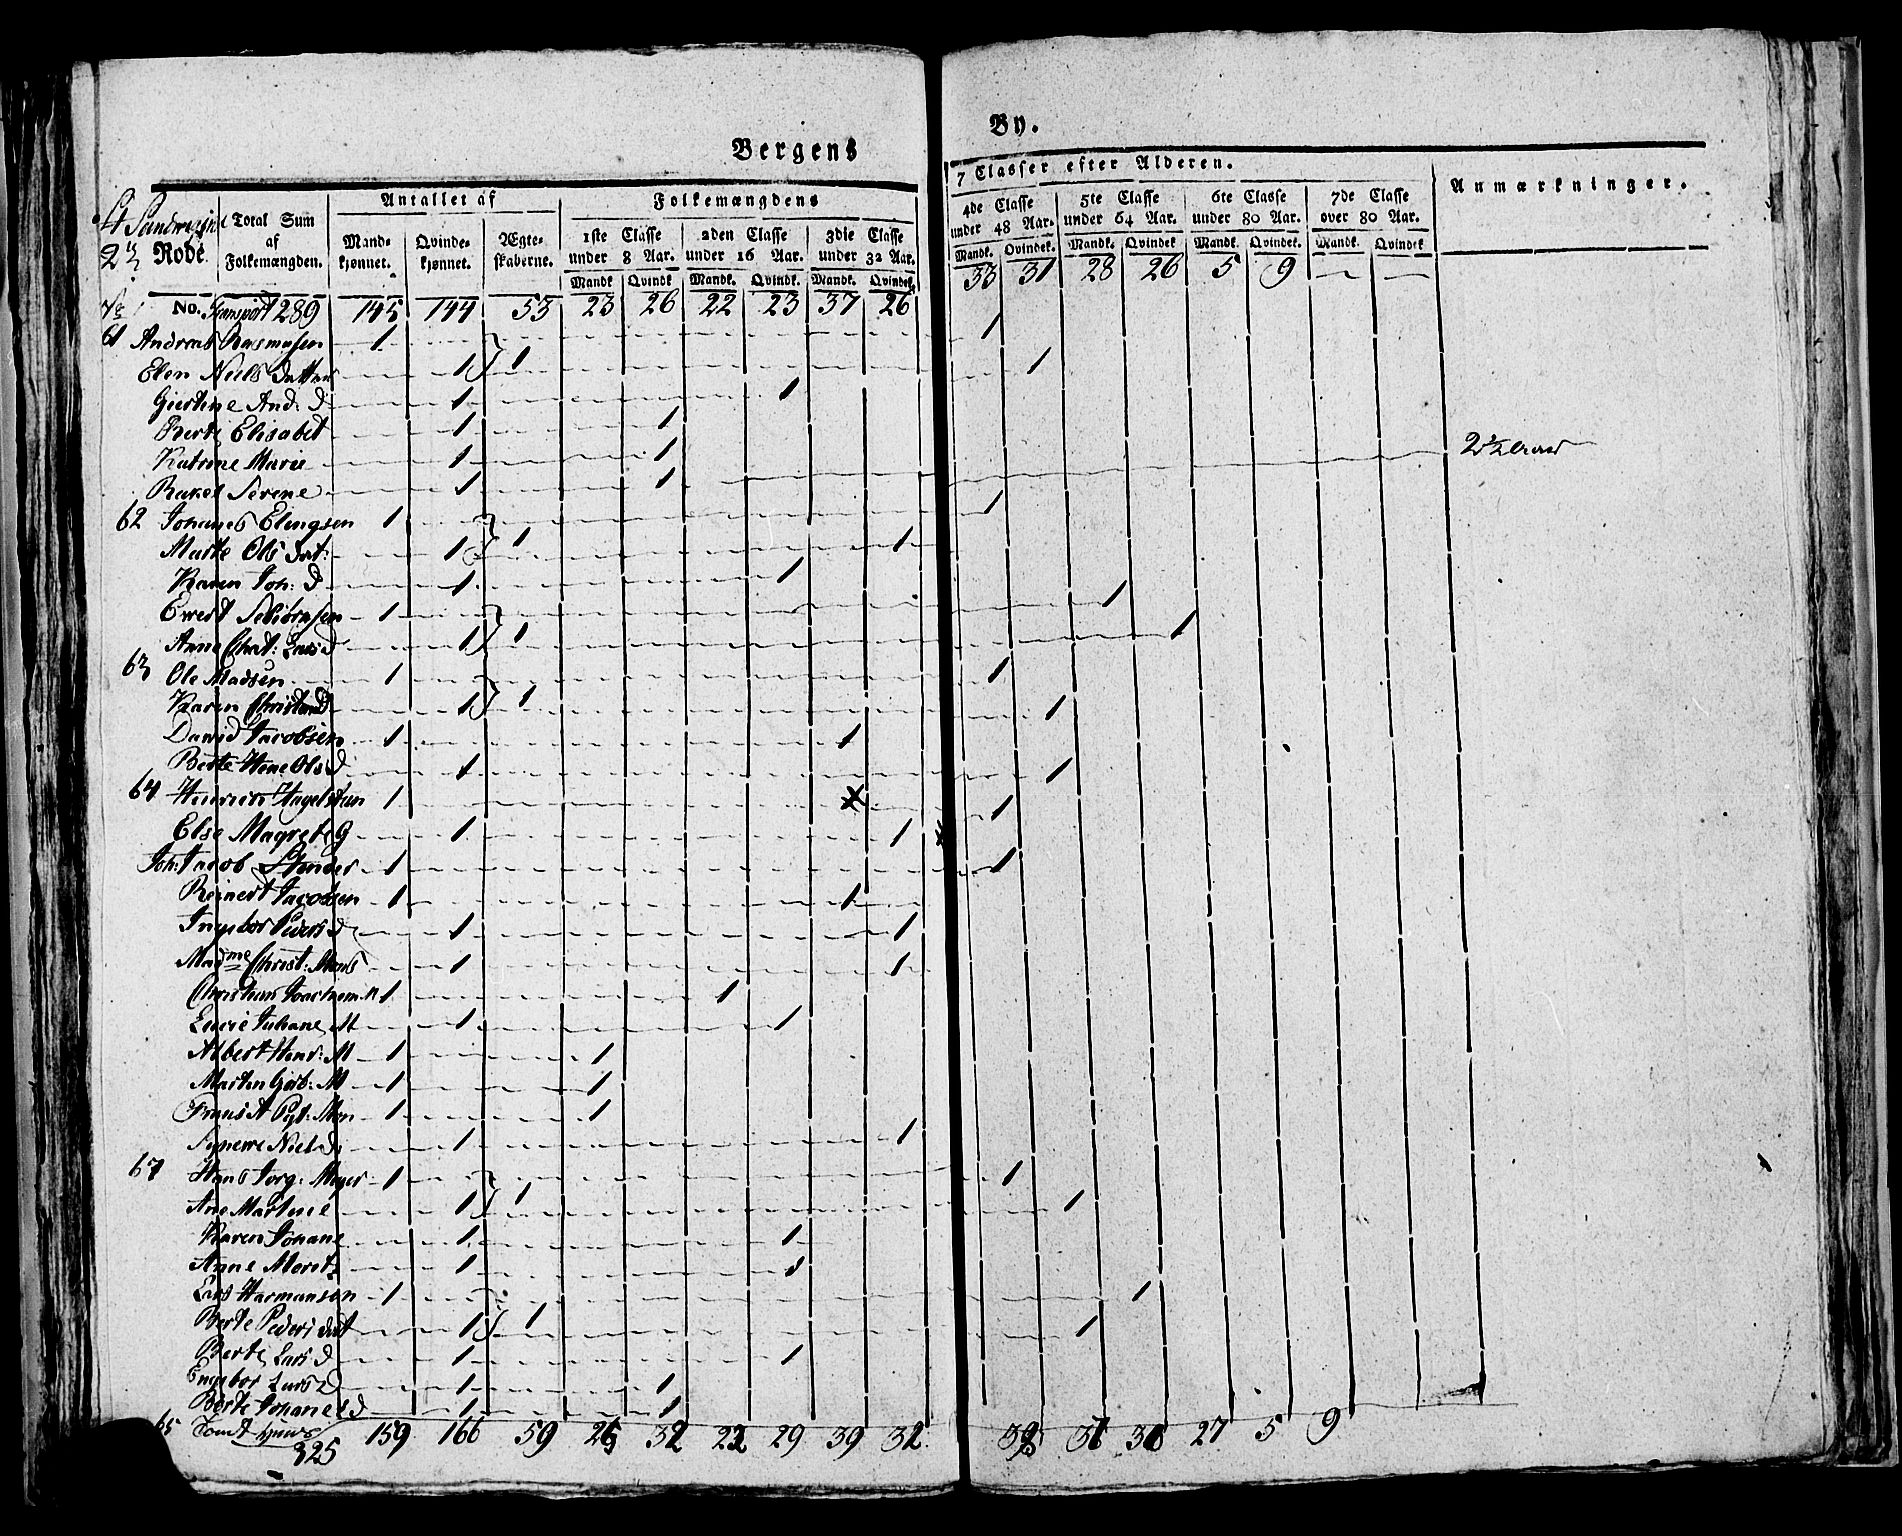 Bergens By.
St Sandwigs
2
Rode
No.
Total Sum af Folkemængden.
Antallet af
Mand-kjønnet.
Qvinde-kjønnet.
Ægte-skaberne.
Folkemængdens 7 Classer efter Alderen.
1ste Classe under 8 Aar.
2den Classe under 16 Aar.
3die Classe under 32 Aar.
4de Classe under 48 Aar.
5te Classe under 64 Aar.
6te Classe under 80 Aar.
7de Classe over 80 Aar.
Mandk. Qvindek. Mandk. Qvindek. Mandk. Qvindek. Mandk. Qvindek. Mandk. Qvindek. Mandk. Qvindek. Mandk. Qvindek.
Anmærkninger.
Transport 289 145 144 53 23 26 22 23 37 26 33 31 28 26 5 9 — —
61 Andreas Rasmusen 1 1
Elen Niels Datter 1 1 1
Giertine And: D 1 1
Berte Elisabet 1 1
Katrine Marie 1 1 2½ Aar
Rakel Serine 1 1
62 Johanes Elingsen 1 1
Marte Ols Dat: 1 1 1
Karen Joh: D 1 1
Ewert 1 1
Anne Chat: Lars D 1 1 1
63 Ole Madsen 1 1
Karen 1 1 1
Dawid Jacobsen 1 1
Berte Hene Ols D 1 1
64 Henrich Hagelsten 1 1
Else Magrete G 1 1
Joh: Jacob Stender 1 1
Reinert Jacobsen 1 1
Ingebor Peders D 1 1
Madme Christ: Mons 1 1
Christian Joachem M 1 1
Lucie Juliane M 1 1
Albert Henr: M 1 1
Marten Gerb: M 1 1
Frans A 1 1
Synewe Niels D 1 1
67 Hans Jorg: Meyer 1 1
Ane Martine 1 1 1
Karen Johane 1 1
Anne Moritz 1 1
Lars Harmansen 1 1
Berte Peders Dat 1 1 1
Berte Lars D 1 1
Engebor Lars D 1 1
Berte Johanes D 1 1
65 Tomt
325 159 166 59 26 32 23 29 39 32 39 36 30 27 5 9